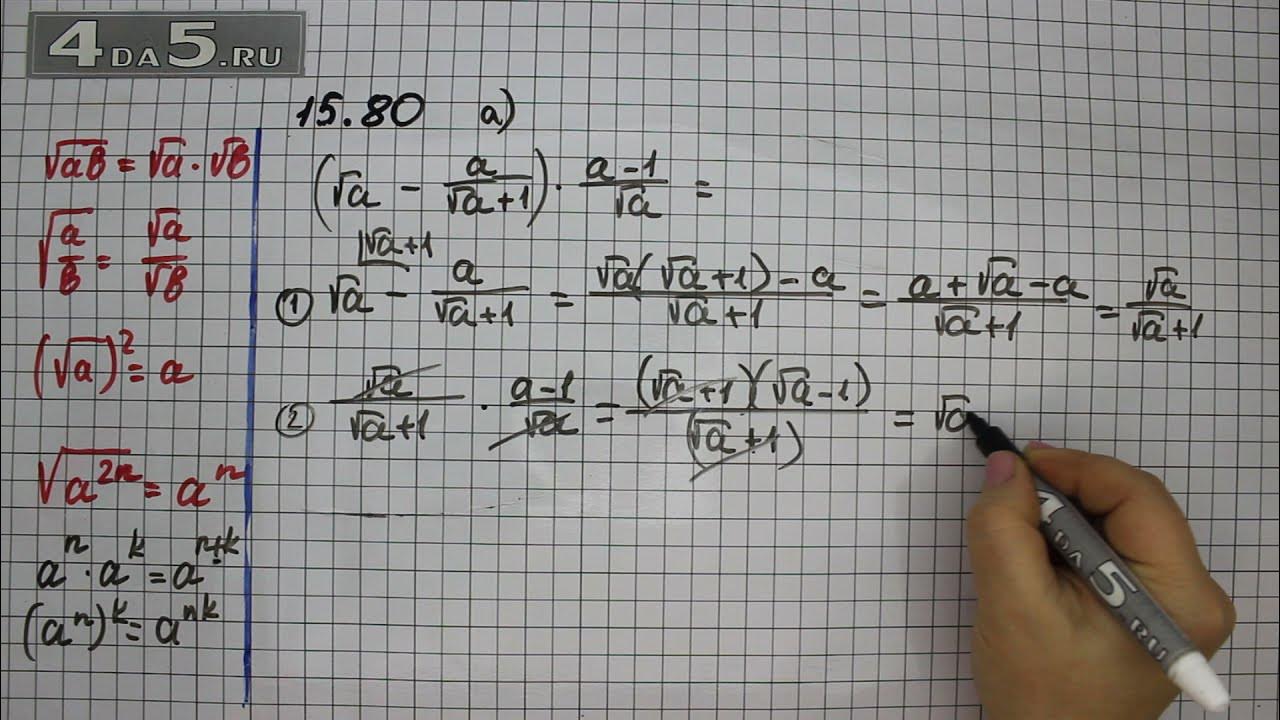 4DA5.RU
15.80 а)
√(aв) = √a · √в
√(a/в) = √a/√в
(√a)² = a
√(a²ⁿ) = aⁿ
aⁿ · aᵏ = aⁿ⁺ᵏ
(aⁿ)ᵏ = aⁿᵏ
(√a - a/(√a+1)) · (a-1)/√a =
|√a+1
① √a - a/(√a+1) = (√a(√a+1)-a)/(√a+1) = (a+√a-a)/(√a+1) = √a/(√a+1)
② √a/(√a+1) · (a-1)/√a = (√a+1)(√a-1)/(√a+1) = √a
4DA5.RU